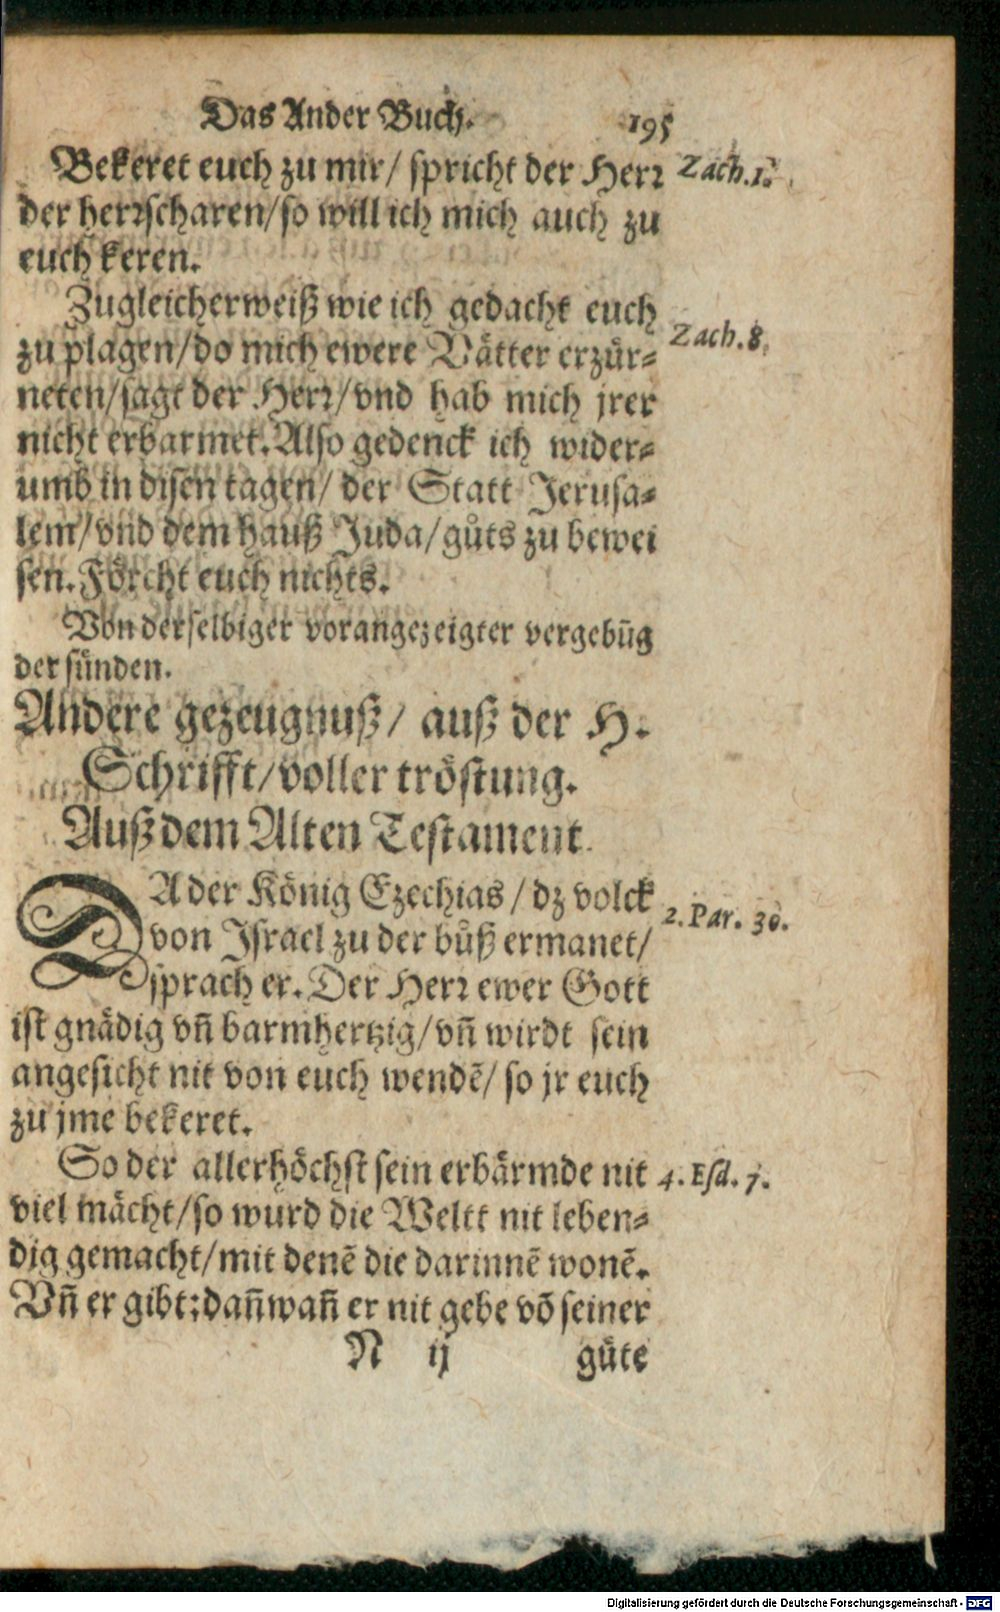 Das Ander Buch. 195
Bekeret euch zu mir/ spricht der Herr Zach.1.
der herrscharen/so will ich mich auch zu
euch keren.
Zugleicherweiß wie ich gedacht euch
zu plagen/do mich ewere Vätter erzür- Zach.8.
neten/sagt der Herr/vnd hab mich jrer
nicht erbarmet. Also gedenck ich wider-
umb in disen tagen/ der Statt Jerusa-
lem/vnd dem hauß Juda/gůts zu bewei
sen. Förcht euch nichts.
Von derselbiger vorangezeigter vergebūg
der sünden.
Andere gezeugnuß/ auß der H.
Schrifft/voller tröstung.
Auß dem Alten Testament.
DA der König Ezechias/dz volck 2.Par. 30.
von Israel zu der bůß ermanet/
sprach er. Der Herr ewer Gott
ist gnädig vn̄ barmhertzig/vn̄ wirdt sein
angesicht nit von euch wendē/ so jr euch
zu jme bekeret.
So der allerhöchst sein erbärmde nit 4. Esd. 7.
viel mächt/so wurd die Weltt nit leben-
dig gemacht/mit denē die darinnē wonē.
Vn̄ er gibt: dan̄ wan̄ er nit gebe vō seiner
N ij güte
Digitalisierung gefördert durch die Deutsche Forschungsgemeinschaft - DFG